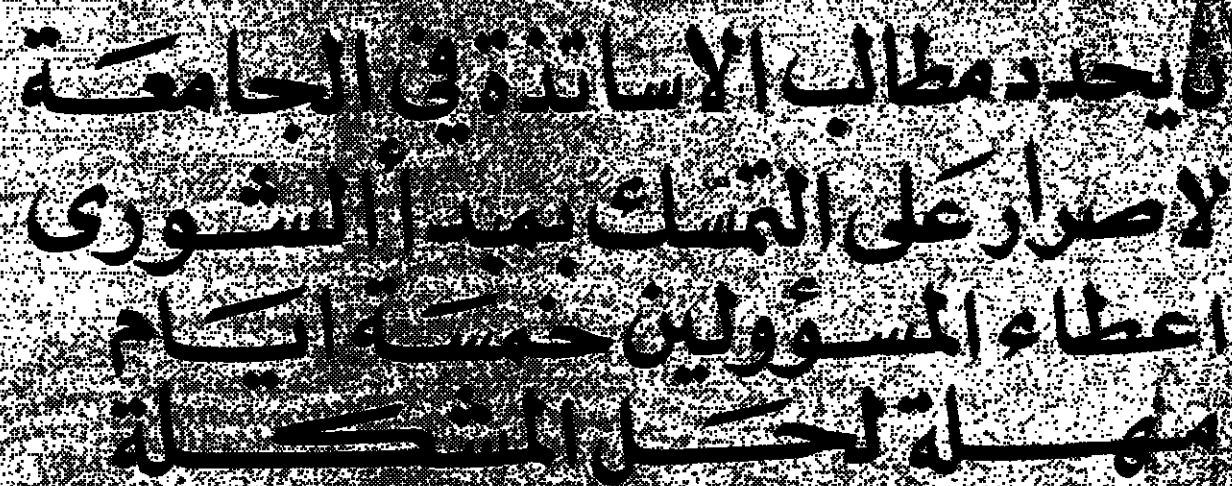 يحدد مطالب الاساتذة في الجامعة
لاصرار على التمسك بمبدأ الشورى
اعطاء المسؤولين خمسة ايام
مهلة لحل المشكلة